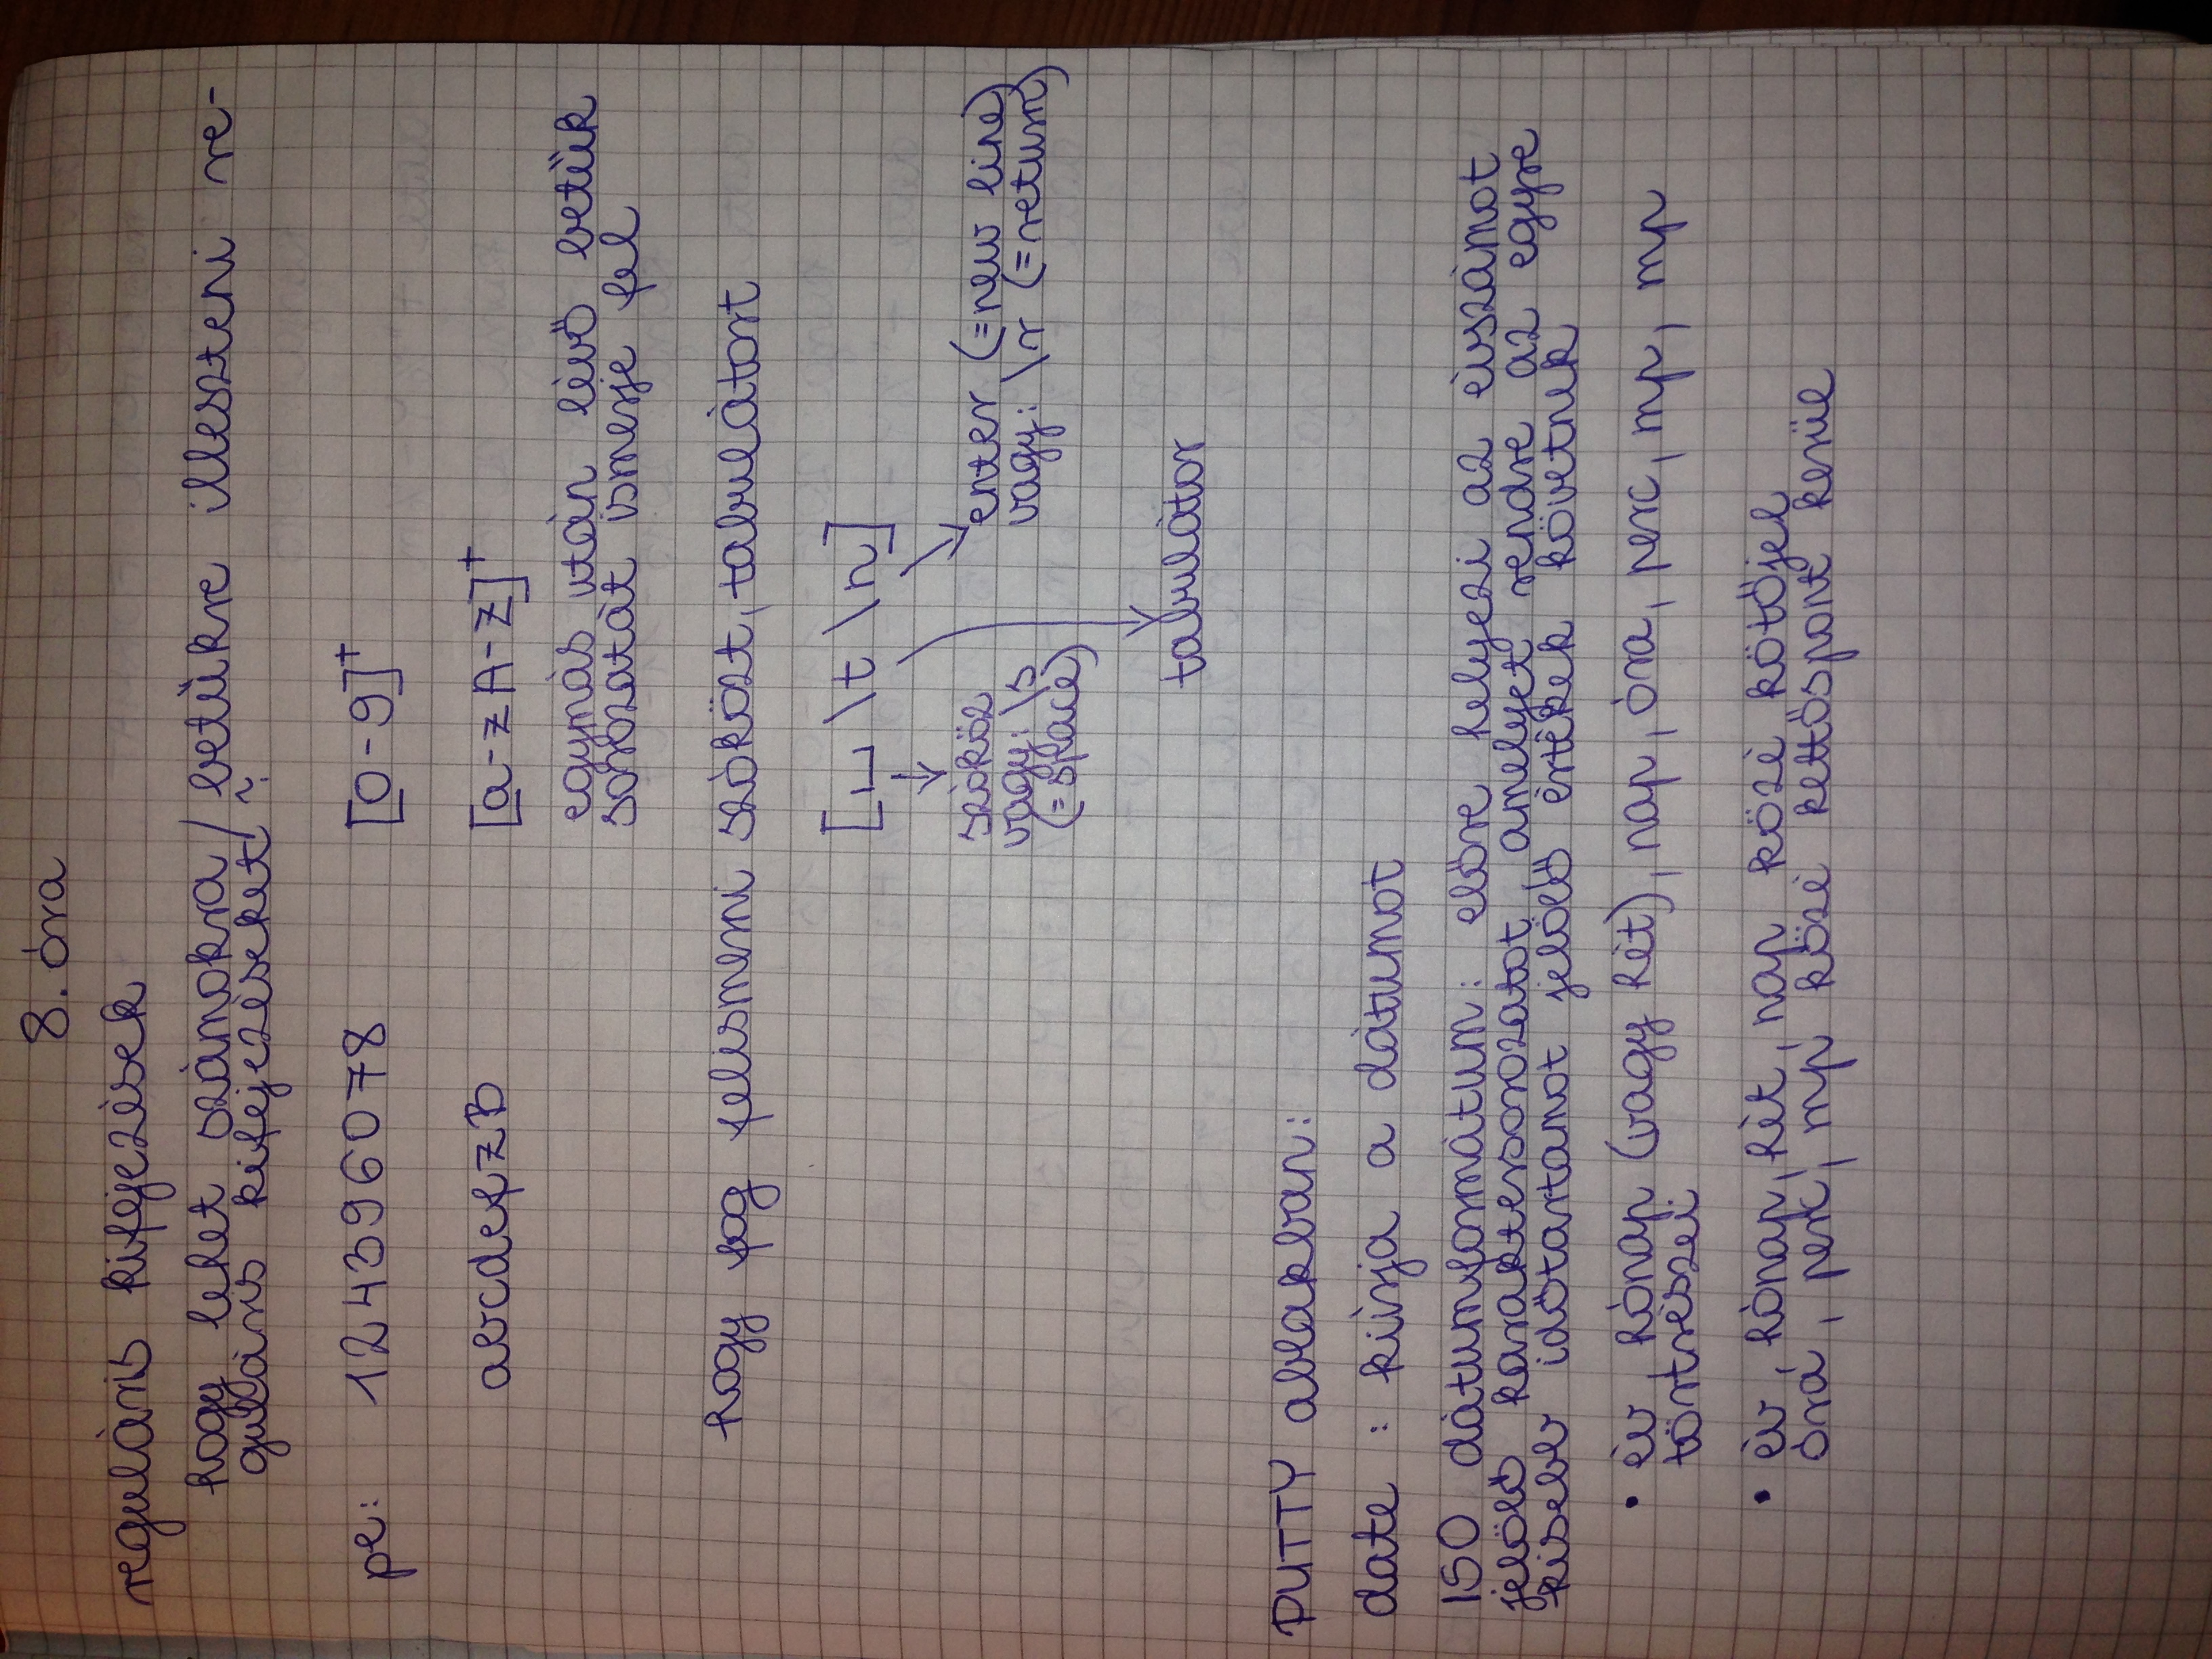 8. óra
reguláris kifejezések
hogy lehet számokra / betűkre illeszteni re-
guláris kifejezéseket?
pl: 124396078 [0-9]+
abcdefzB [a-zA-Z]+
egymás után lévő betűk
sorozatát ismerje fel
hogy fog felismerni szóközt, tabulátort
[␣ \t \n]
szóköz
vagy: \s
(=space)
enter (=new line)
vagy: \r (=return)
tabulátor
PUTTY ablakban:
date : kiírja a dátumot
ISO dátumformátum: előre helyezi az évszámot
jelölő karaktersorozatot, amelyet rendre az egyre
kisebb időtartamot jelölő értékek követnek
• év, hónap (vagy hét), nap, óra, perc, mp, mp
törtrészei
• év, hónap, hét, nap közé kötőjel
óra, perc, mp közé kettőspont kerül